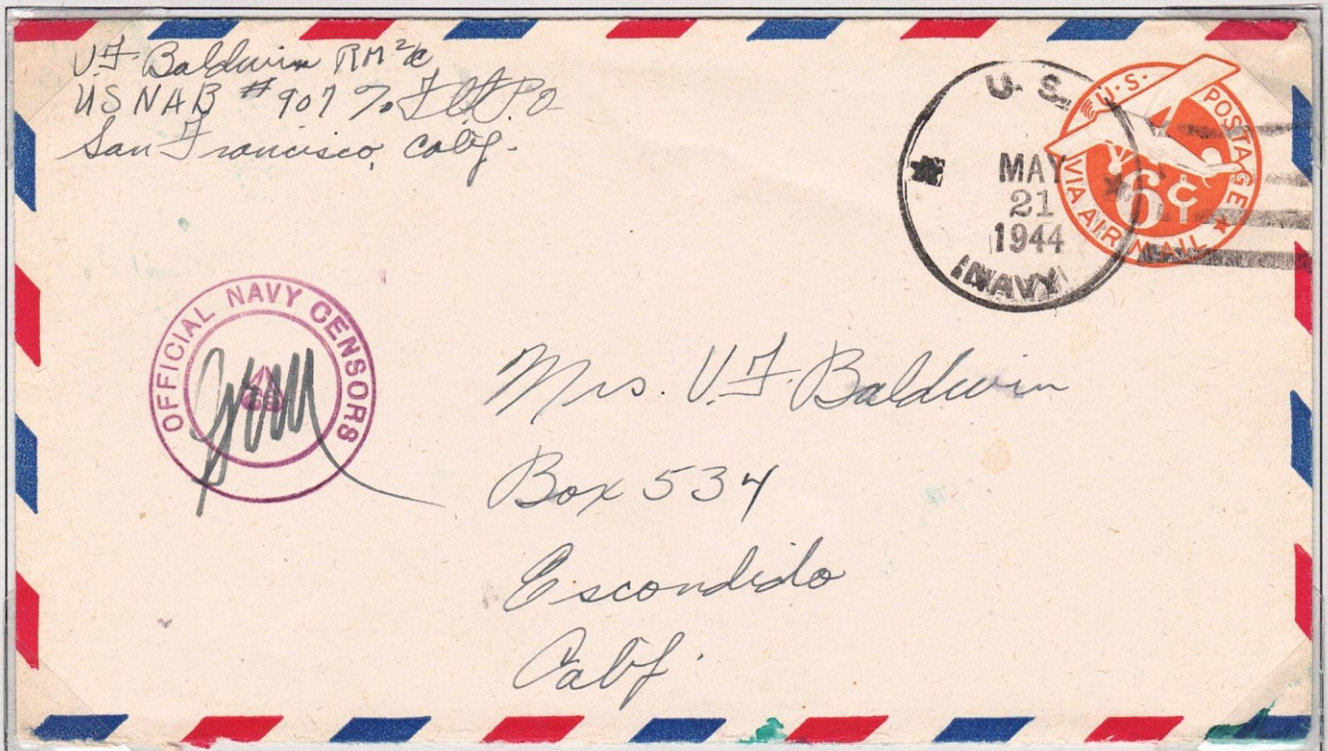 V.F. Baldwin RM 2/c
USNAB #907 ℅ Flt P.O
San Francisco, Calif.
U.S.
MAY
21
1944
(NAVY)
U.S. POSTAGE
6¢
VIA AIR MAIL
OFFICIAL NAVY CENSORS
Mrs. V.F. Baldwin
Box 534
Escondido
Calif.